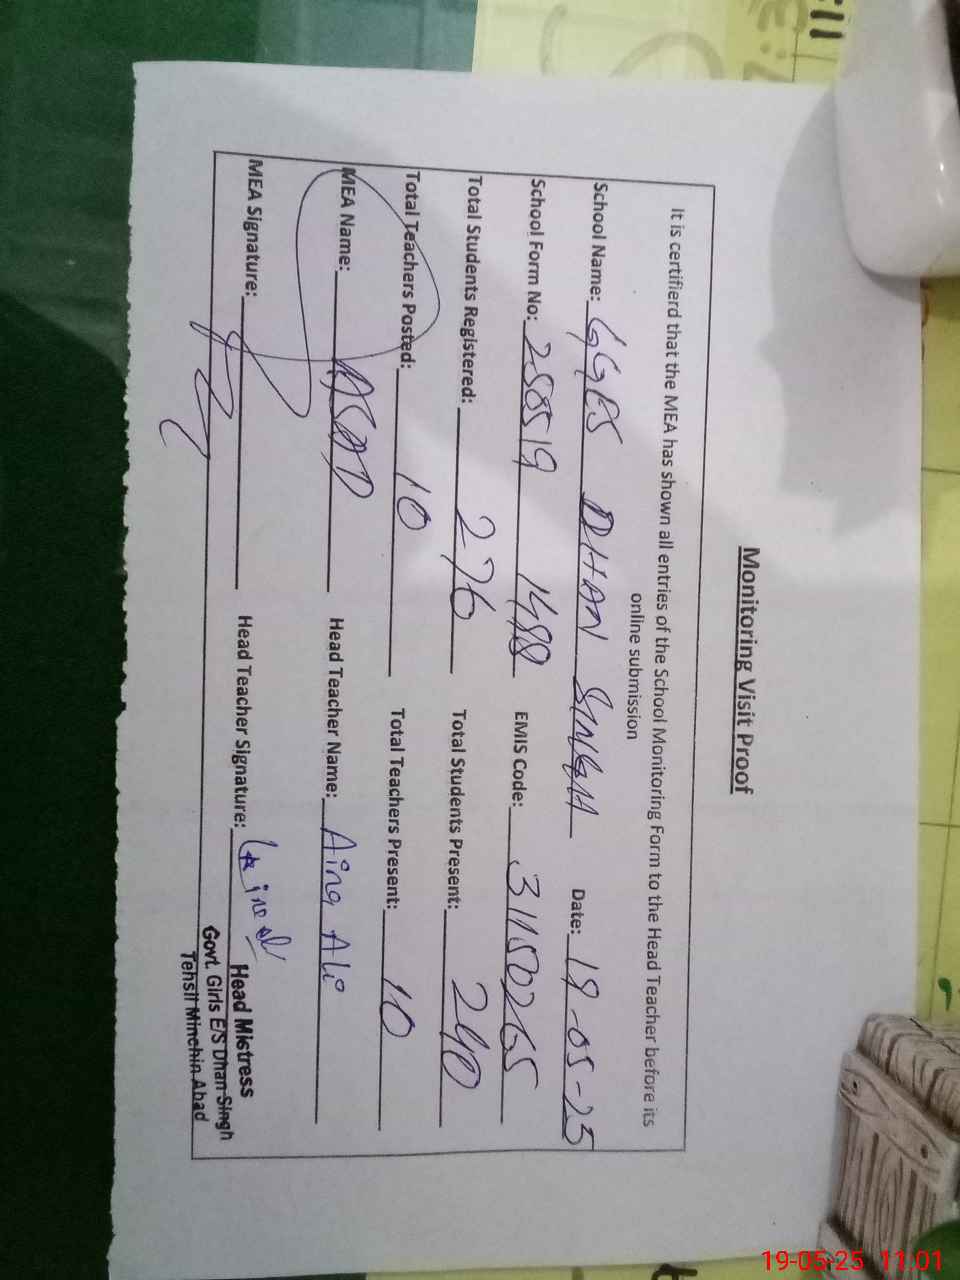 Monitoring Visit Proof
It is certifierd that the MEA has shown all entries of the School Monitoring Form to the Head Teacher before its
online submission
School Name: GGES DHAN SINGH Date: 19-05-25
School Form No: 288519 1488 EMIS Code: 31150265
Total Students Registered: 276 Total Students Present: 240
Total Teachers Posted: 10 Total Teachers Present: 10
MEA Name: ASAD Head Teacher Name: Aina Ali
MEA Signature: Head Teacher Signature:
Head Mistress
Govt. Girls E/S Dhan Singh
Tehsil Minchin Abad
19-05-25 11:01